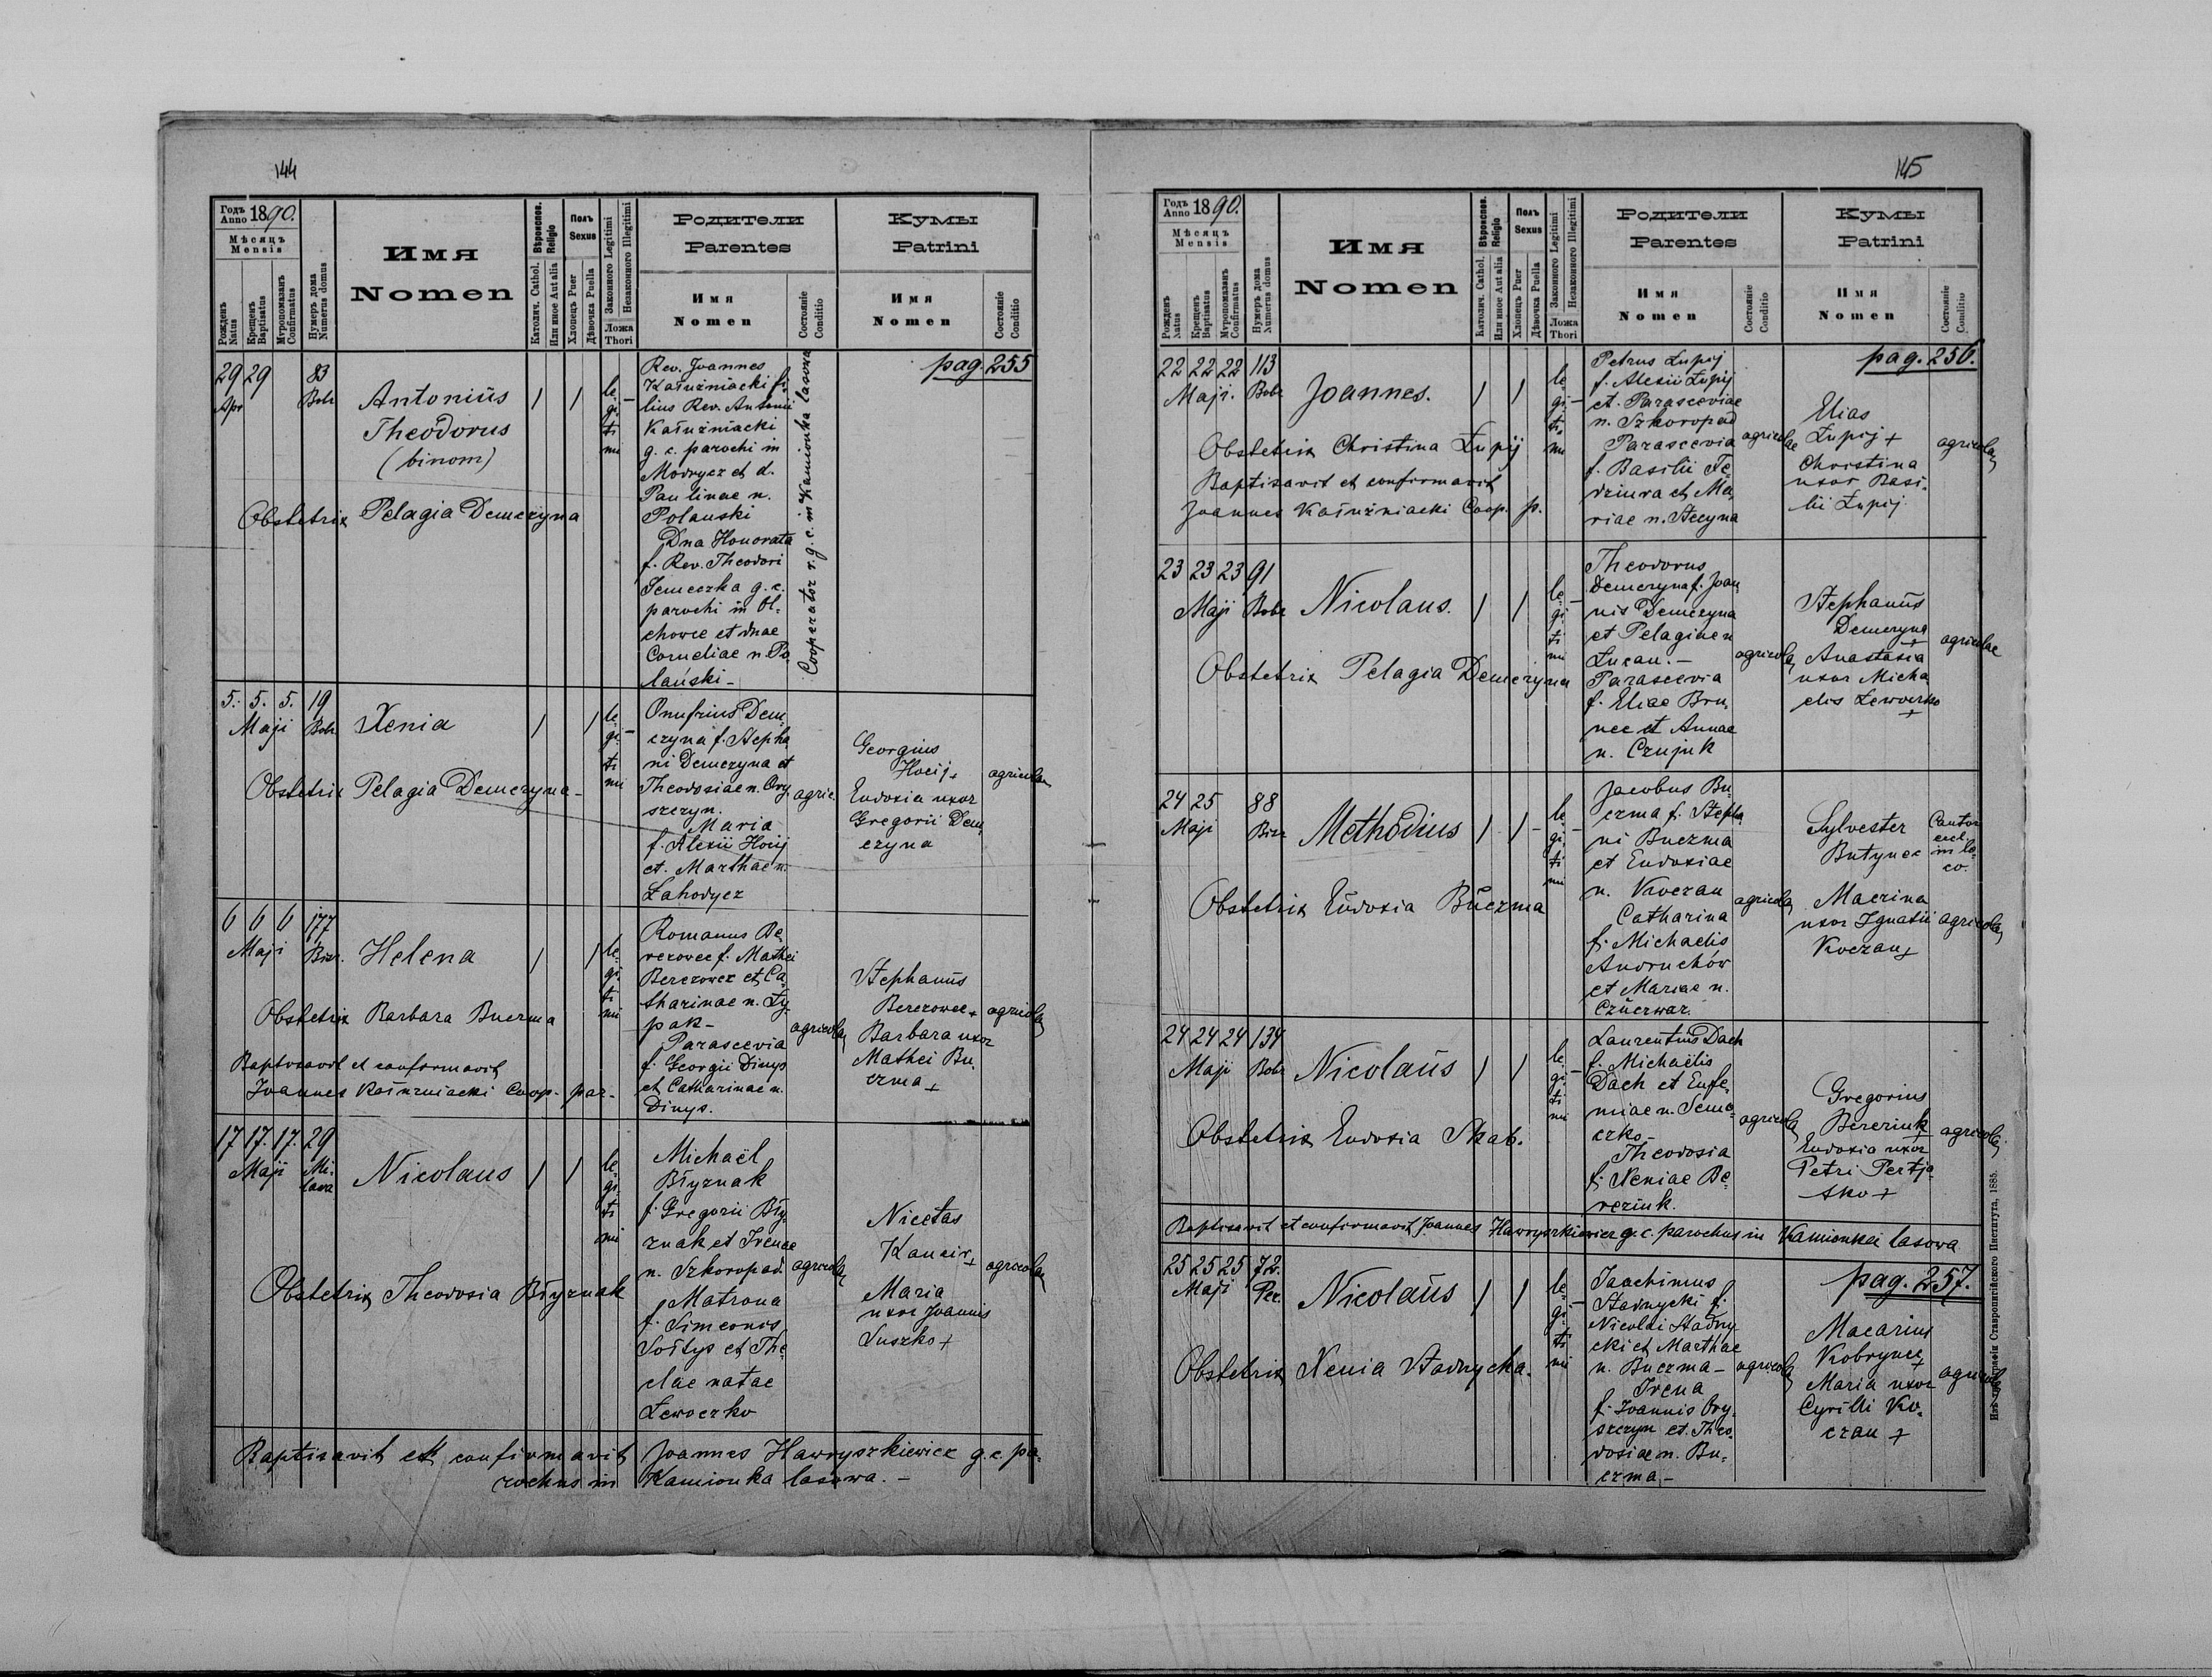 144
Годъ Anno 1890.
Мѣсяцъ Mensis
Рожденъ Natus
Крещенъ Baptisatus
Мѵропомазанъ Confirmatus
Нумеръ дома Numerus domus
Имя
Nomen
Вѣроиспов. Religio
Католич. Cathol.
Или иное Aut alia
Полъ Sexus
Хлопецъ Puer
Дѣвочка Puella
Законного Legitimi
Незаконного Illegitimi
Ложа Thori
Родители
Parentes
Имя
Nomen
Состояніе Conditio
Кумы
Patrini
Имя
Nomen
Состояніе Conditio
pag. 255
29 29 83
Apr Bobr
Antonius
Theodorus
(binom)
Obstetrix Pelagia Demczyna
legitimi
Rev. Joannes
Kałużniacki fi-
lius Rev. Antonii
Kałużniacki
g. c. parochi in
Modrycz et d.
Paulinae n.
Polanski
Dna Honorata
f. Rev. Theodori
Jemeczka g. c.
parochi in Ol-
chowce et dnae
Corneliae n. Po-
lański -
Cooperator r. g. c. in Kamionka lasowa
5. 5. 5. 19
Maji Bobr
Xenia
Obstetrix Pelagia Demczyna -
legitimi
Onufrius Dem-
czyna f. Stepha-
ni Demczyna et
Theodosiae n. Ory-
szczyn.
Maria
f. Alexii Hocij
et. Marthae n.
Łahodycz
agric.
Georgius
Hocij +
Eudoxia uxor
Gregorii Dem-
czyna
agricolae
6 6 6 177
Maji Bisr.
Helena
Obstetrix Barbara Buczma
Baptisavit et confirmavit
Joannes Kałużniacki Coop. par.
legitimi
Romanus Be-
rezowec f. Mathei
Berezowec et Ca-
tharinae n. Ły-
pak -
Parascevia
f. Georgii Dinys
et Catharinae n.
Dinys.
agricolae
Stephanus
Berezowec +
Barbara uxor
Mathei Bu-
czma +
agricolae
17 17. 17. 29
Maji Milawa
Nicolaus
Obstetrix Theodosia Błyznak
legitimi
Michaël
Błyznak
f. Gregorii Bły-
znak et Irenae
n. Szkoropad.
Matrona
f. Simeonis
Sołtys et The-
clae natae
Lewoczko
agricolae
Nicetas
Kancir +
Maria
uxor Joannis
Suszko +
agricolae
Baptisavit et confirmavit Joannes Hawryszkiewicz g. c. pa-
rochus in Kamionka lasowa. -
145
Годъ Anno 1890.
Мѣсяцъ Mensis
Рожденъ Natus
Крещенъ Baptisatus
Мѵропомазанъ Confirmatus
Нумеръ дома Numerus domus
Имя
Nomen
Вѣроиспов. Religio
Католич. Cathol.
Или иное Aut alia
Полъ Sexus
Хлопецъ Puer
Дѣвочка Puella
Законного Legitimi
Незаконного Illegitimi
Ложа Thori
Родители
Parentes
Имя
Nomen
Состояніе Conditio
Кумы
Patrini
Имя
Nomen
Состояніе Conditio
pag. 256.
22 22 22 113
Maji. Bobr
Joannes.
Obstetrix Christina Łupij
Baptisavit et confirmavit
Joannes Kałużniacki Coop. p.
legitimi
Petrus Łupij
f. Alexii Łupij
et. Parasceviae
n. Szkoropad
Parascevia
f. Basilii Fe-
dziura et Ma-
riae n. Stecyna
agricolae
Elias
Łupij +
Christina
uxor Basi-
lii Łupij
agricolae
23 23 23 91
Maji Bobr
Nicolaus.
Obstetrix Pelagia Demczyna
legitimi
Theodorus
Demczyna f. Joan-
nis Demczyna
et Pelagiae n
Łucan. -
Parascevia
f. Eliae Bru-
nec et Annae
n. Czujuk
agricolae
Stephanus
Demczyna +
Anastasia
uxor Micha-
elis Lewoczko +
agricolae
24 25 88
Maji Bisr
Methodius
Obstetrix Eudoxia Buczma
legitimi
Jacobus Bu-
czma f. Stepha-
ni Buczma
et Eudoxiae
n. Koczan
Catharina
f. Michaelis
Andruchów
et Mariae n.
Czuczwar.
agricolae
Sylvester
Butynec
Cantor
eccl.
in lo-
co.
Macrina
uxor Ignatii
Koczan +
agricolae
24 24 24 134
Maji Bobr
Nicolaus
Obstetrix Eudoxia Skab.
legitimi
Laurentius Dach
f. Michaëlis
Dach et Eufe-
miae n. Seme-
czko -
Theodosia
f. Xeniae Be-
reziuk.
agricolae
Gregorius
Bereziuk +
Eudoxia uxor
Petri Pertja-
sko +
agricolae
Baptisavit et confirmavit Joannes Hawryszkiewicz g. c. parochus in Kamionka lasowa
pag. 257.
25 25 25 72.
Maji Per.
Nicolaus
Obstetrix Xenia Stadnycka.
legitimi
Joachimus
Stadnycki f.
Nicolai Stadny-
cki et Marthae
n. Buczma -
Irena
f. Joannis Ory-
szczyn et. Theo-
dosiae n. Bu-
czma -
agricolae
Macarius
Kobrynec +
Maria uxor
Cyrilli Ko-
czan +
agricolae
Изъ типографіи Ставропигійского Института, 1885.